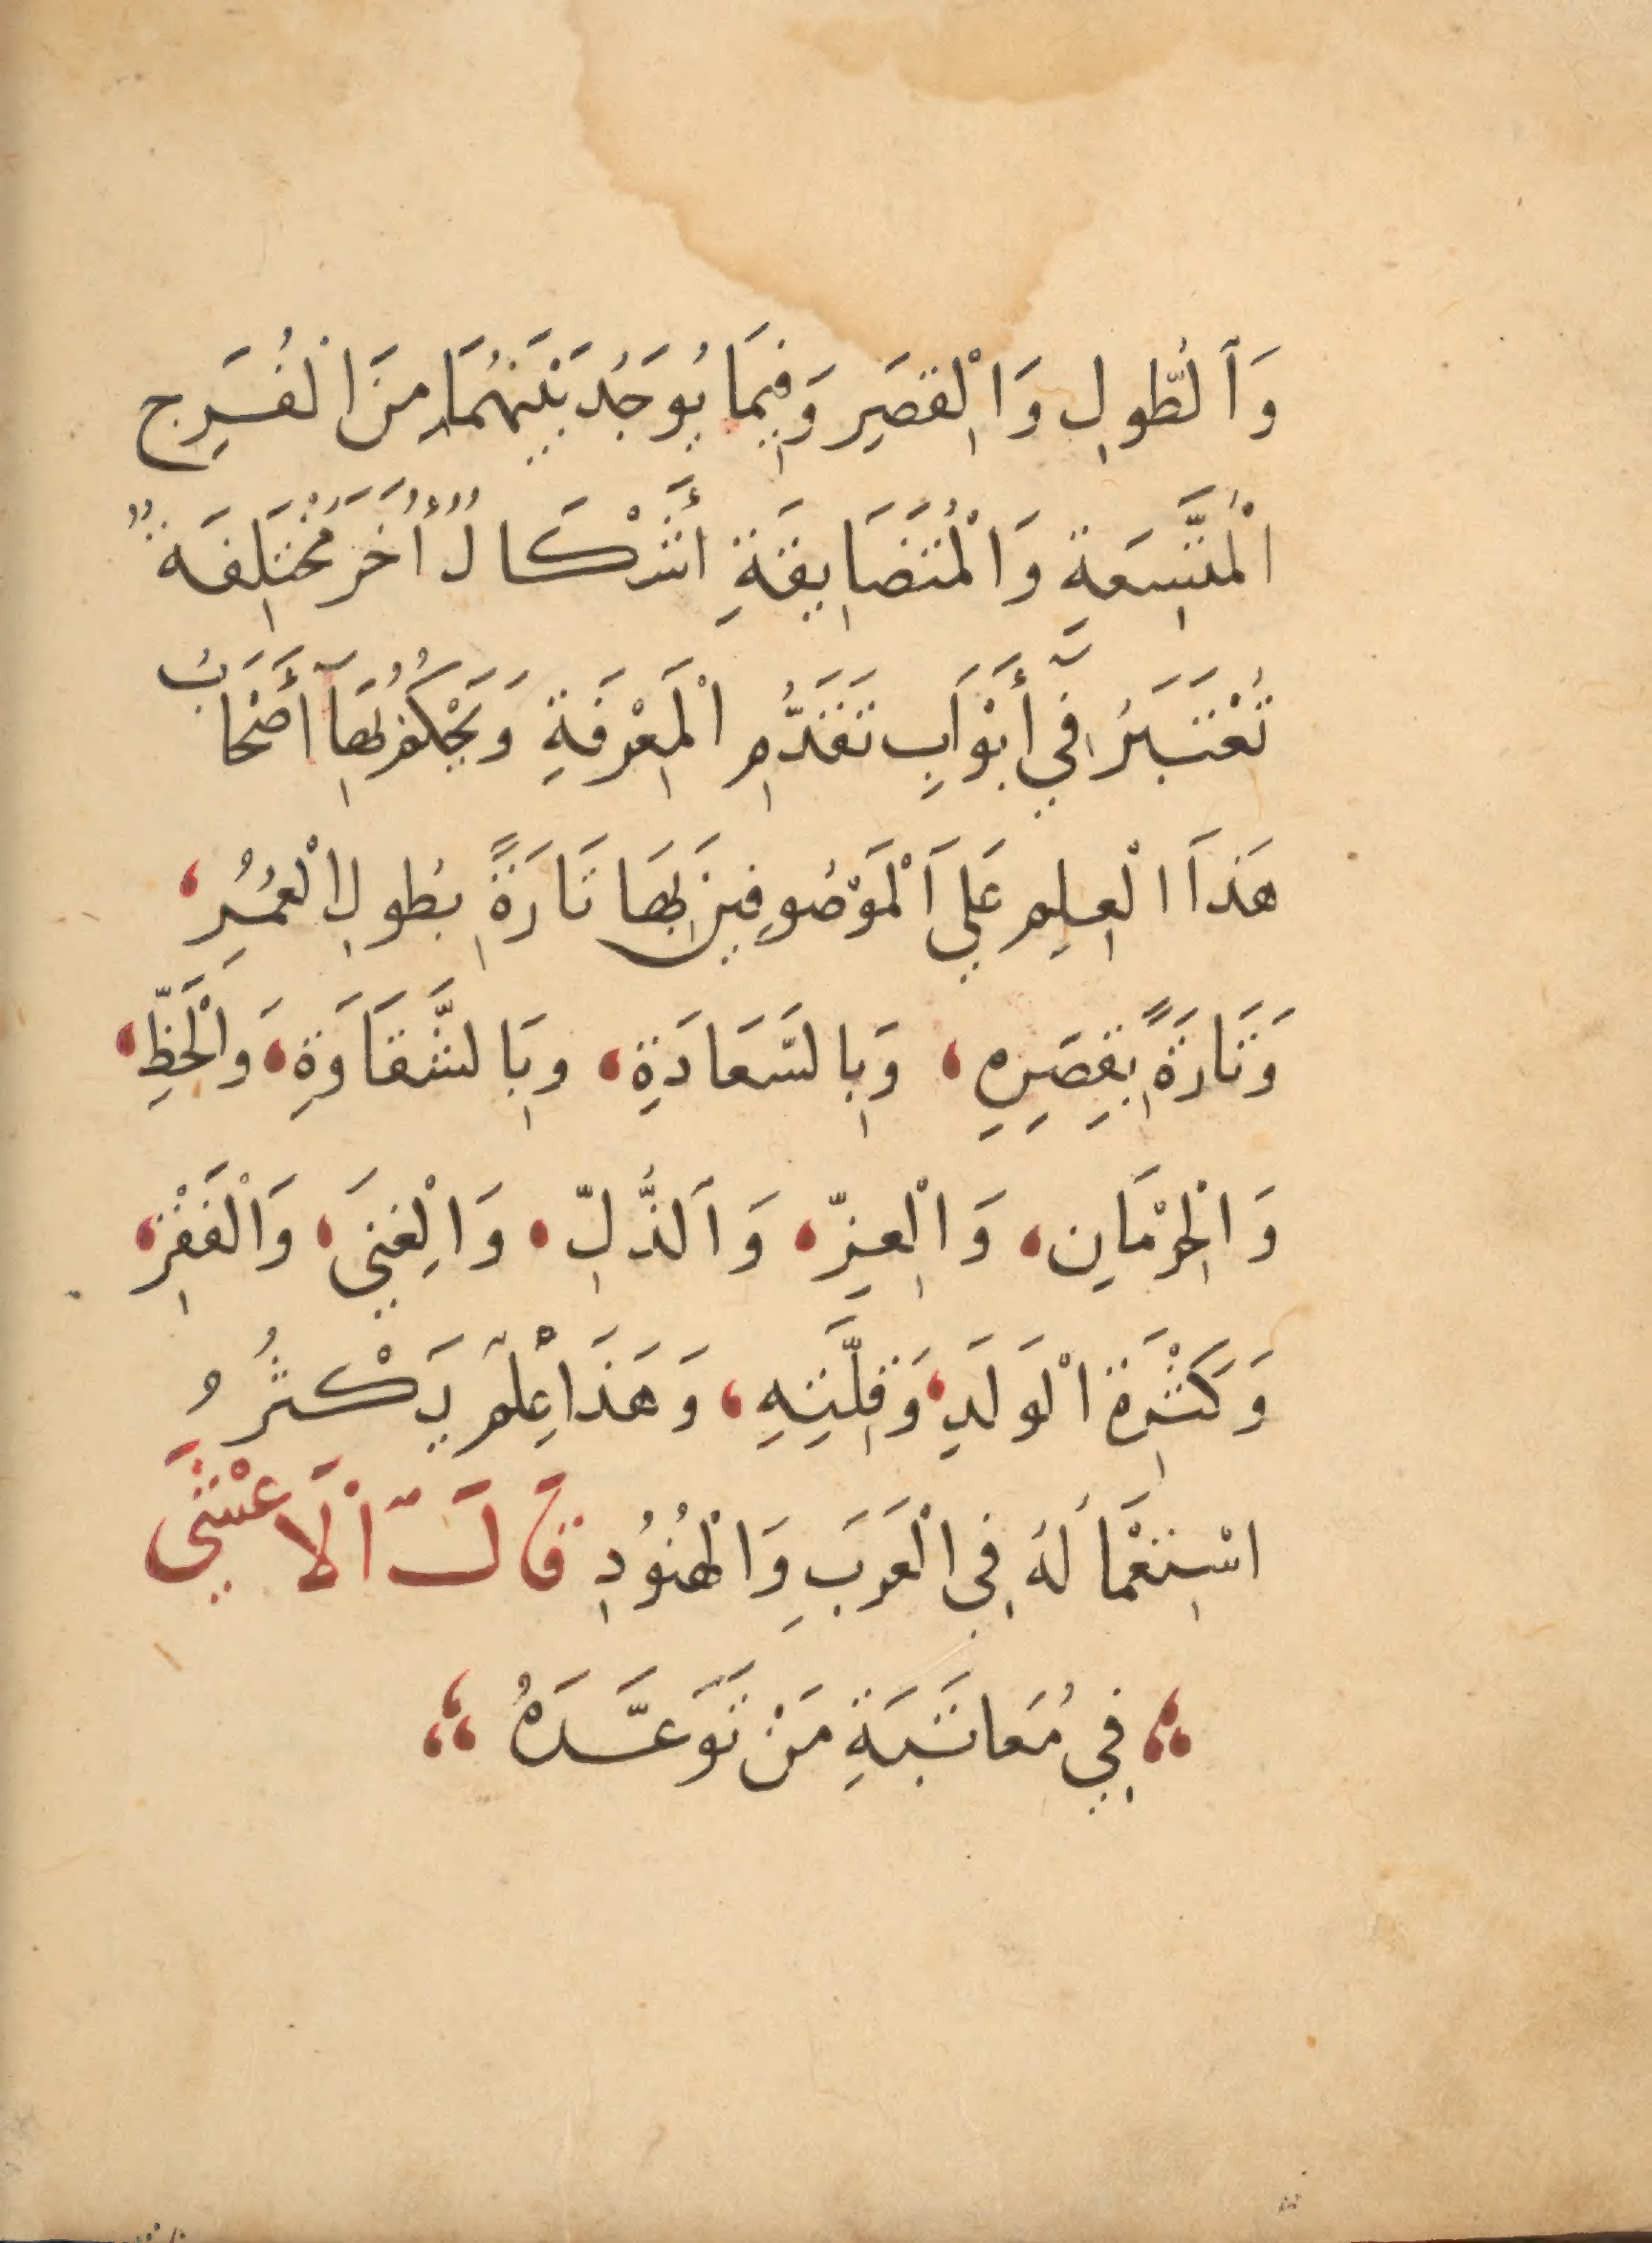 وَٱلطُّولِ وَالْقِصَرِ وَفِيمَا يُوجَدُ بَيْنَهُمَا مِنَ الْفُرَجِ
الْمُتَّسِعَةِ وَالْمُتَضَايِقَةِ أَشْكَالٌ أُخَرُ مُخْتَلِفَةٌ
تُعْتَبَرُ فِي أَبْوَابِ تَقَدُّمِ الْمَعْرِفَةِ وَيَحْكُمُ بِهَآ أَصْحَابُ
هَذَا الْعِلْمِ عَلَى الْمَوْصُوفِينَ بِهَا تَارَةً بِطُولِ الْعُمُرِ،
وَتَارَةً بِقِصَرِهِ، وَبِالسَّعَادَةِ، وَبِالشَّقَاوَةِ، وَالْحَظِّ،
وَالْحِرْمَانِ، وَالْعِزِّ، وَٱلذُّلِّ، وَالْغِنَى، وَالْفَقْرِ،
وَكَثْرَةِ الْوَلَدِ، وَقِلَّتِهِ، وَهَذَا عِلْمٌ يَكْثُرُ
اسْتِعْمَالُهُ فِي الْعَرَبِ وَالْهُنُودِ قَالَ الْأَعْشَى
فِي مُعَاتَبَةِ مَنْ تَوَعَّدَهُ